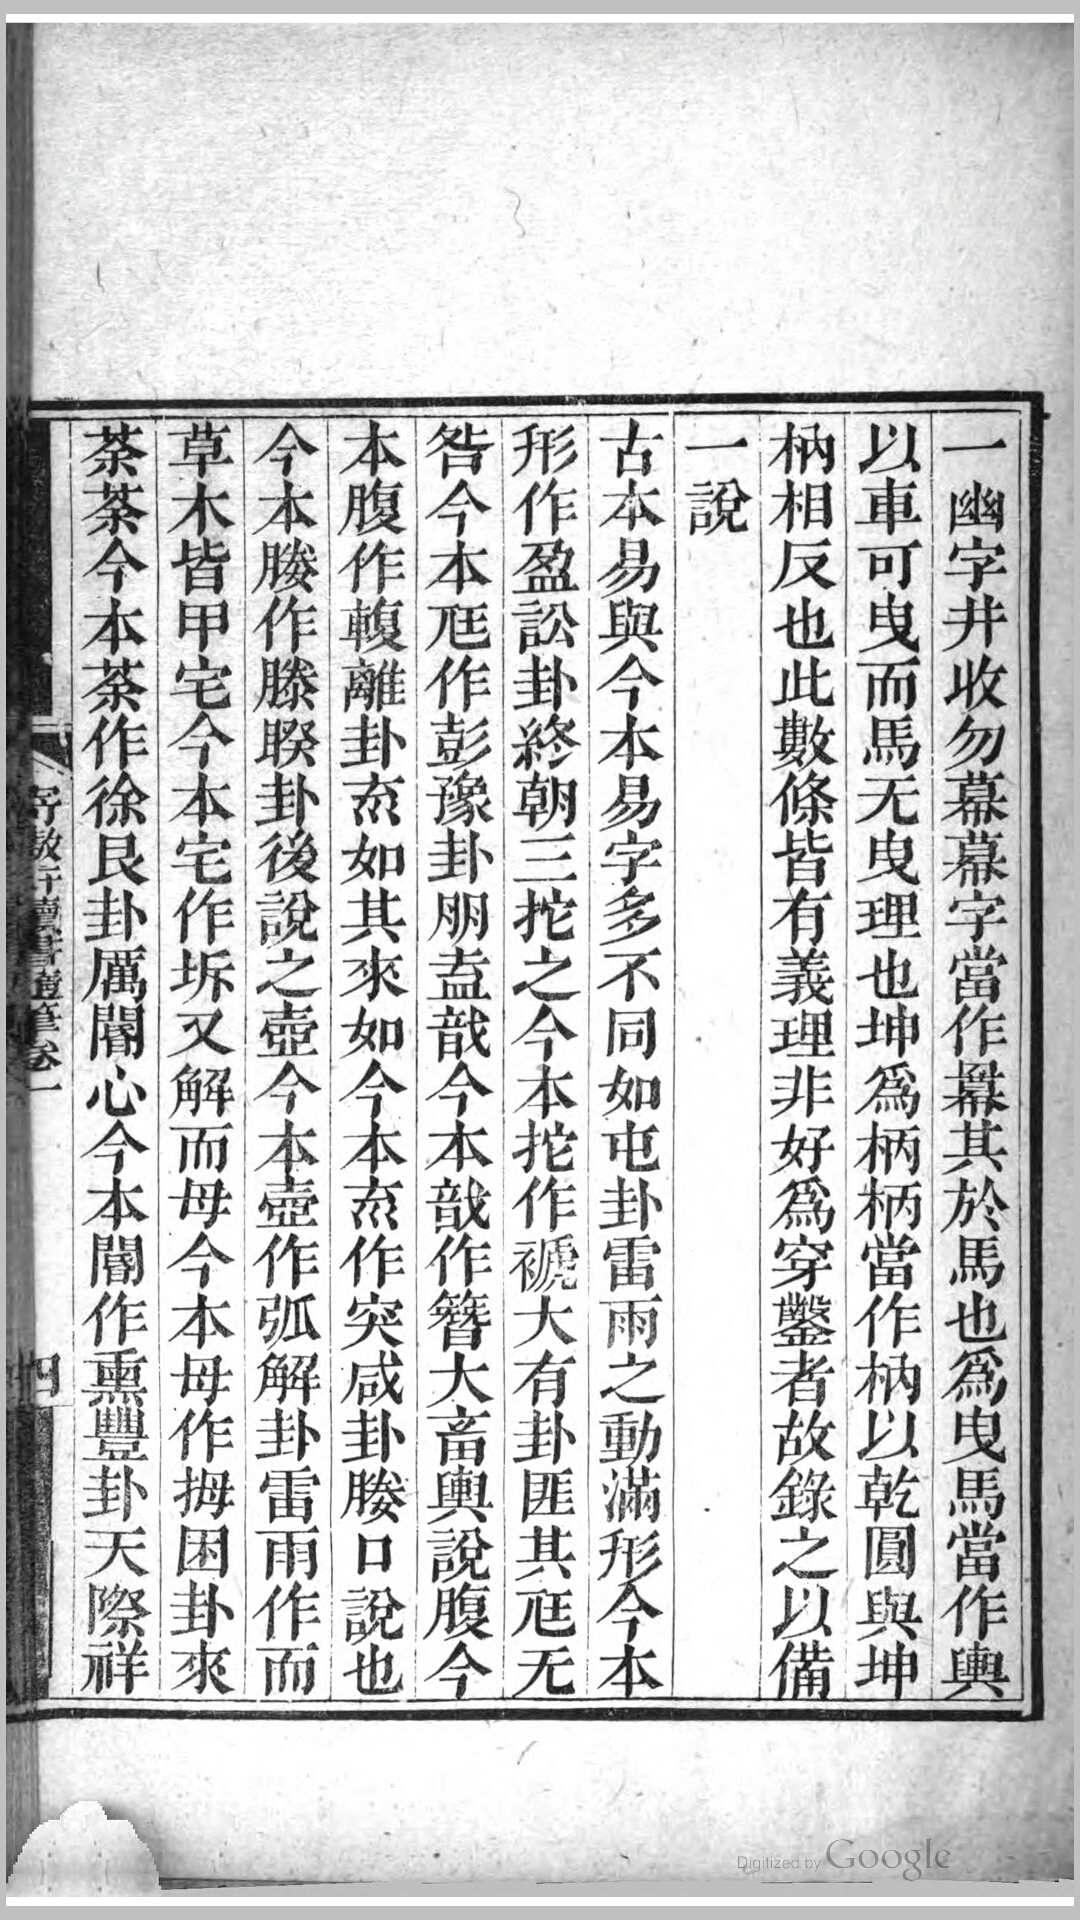 一幽字井收勿幕幕字當作冪其於馬也爲曳馬當作輿
以車可曳而馬无曳理也坤爲柄柄當作枘以乾圓與坤
枘相反也此數條皆有義理非好爲穿鑿者故錄之以備
一說
古本易與今本易字多不同如屯卦雷雨之動滿形今本
形作盈訟卦終朝三拕之今本拕作褫大有卦匪其尫无
咎今本尫作彭豫卦朋盍戠今本戠作簪大畜輿說腹今
本腹作輹離卦㐬如其來如今本㐬作突咸卦媵口說也
今本媵作滕睽卦後說之壺今本壺作弧解卦雷雨作而
草木皆甲宅今本宅作坼又解而母今本母作拇困卦來
荼荼今本荼作徐艮卦厲閽心今本閽作熏豐卦天際祥
讀書隨筆卷一
四
Digitized by Google